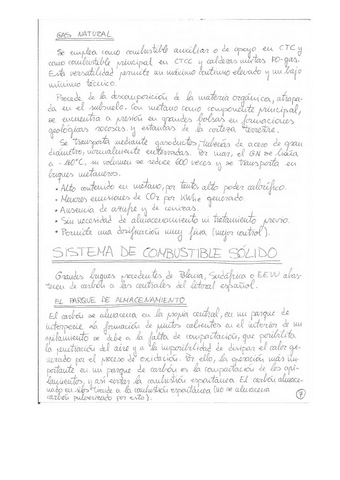 GAS NATURAL
Se emplea como combustible auxiliar o de apoyo en CTC y
como combustible principal en CTCC y calderas mixtas FO-gas.
Esta versatilidad permite un máximo continuo elevado y un bajo
mínimo técnico.
Procede de la descomposición de la materia orgánica, atrapa-
da en el subsuelo. Con metano como componente principal,
se encuentra a presión en grandes bolsas en formaciones
geológicas rocosas y estancas de la corteza terrestre.
Se transporta mediante gaseoductos, tuberías de acero de gran
diámetro, normalmente enterrados. Por mar, el GN se licúa
a -160°C, su volumen se reduce 600 veces y se transporta en
buques metaneros.
• Alto contenido en metano, por tanto alto poder calorífico.
• Menores emisiones de CO2 por kWh generado
• Ausencia de azufre y de cenizas.
• Sin necesidad de almacenamiento ni tratamiento previo.
• Permite una dosificación muy fina (mejor control).
SISTEMA DE COMBUSTIBLE SÓLIDO
Grandes buques procedentes de Sudáfrica o EEUU abas-
tecen de carbón a las centrales del litoral español.
EL PARQUE DE ALMACENAMIENTO
El carbón se almacena en la propia central, en un parque de
intemperie. La formación de puntos calientes en el interior de un
apilamiento se debe a la falta de compactación, que posibilita
la penetración del aire y a la imposibilidad de disipar el calor ge-
nerado por el proceso de oxidación. Por ello, la operación más im-
portante en un parque de carbón es la compactación de los api-
lamientos, y así evitar la combustión espontánea. El carbón almace-
nado en silos tiende a la combustión espontánea (no se almacena
carbón pulverizado por esto).
7